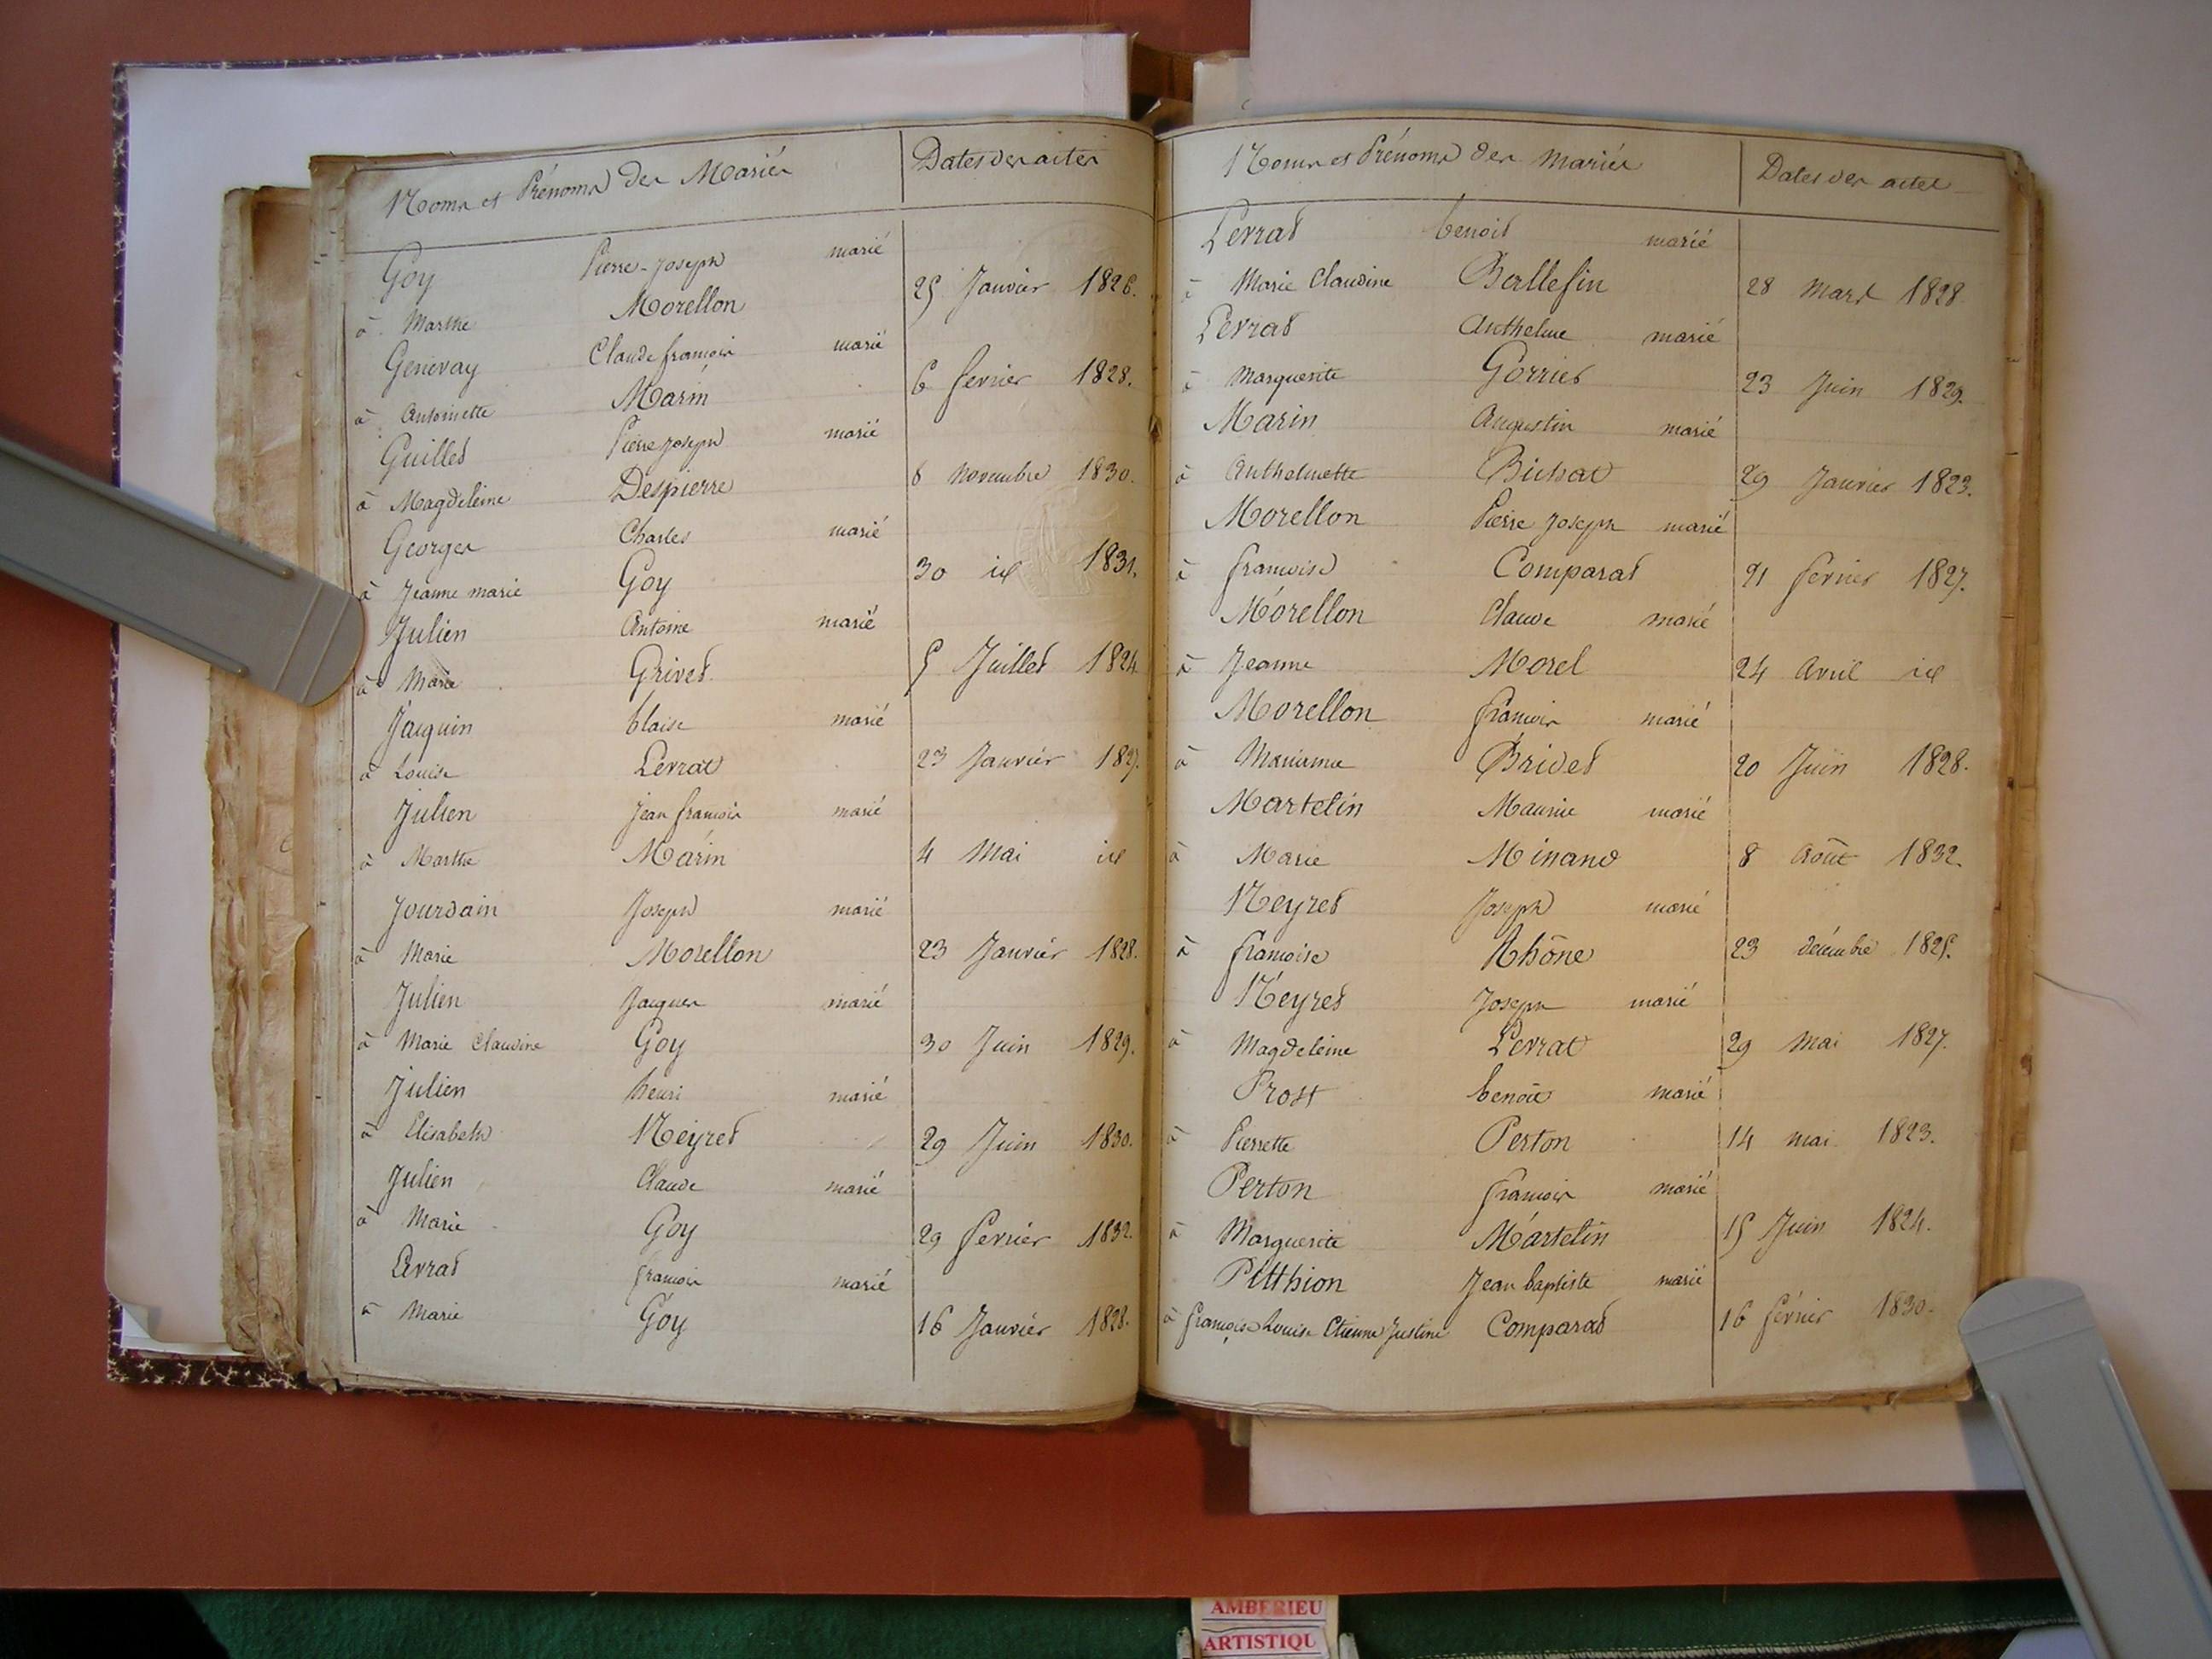 Noms et Prénoms des Mariés Dates des actes
Goy Pierre-Joseph marié
à Marthe Morellon 25 Janvier 1826.
Genevay Claude françois marié
à Antoinette Marin 6 fevrier 1828.
Guillet Pierre joseph marié
à Magdeleine Despierre 8 Novembre 1830.
Georges Charles marié
à Jeanne marie Goy 30 id 1831.
Julien Antoine marié
à Marie Grivet 5 Juillet 1824
Jacquin blaise marié
à Louise Levrat 23 Janvier 1827.
Julien Jean françois marié
à Marthe Marin 4 Mai id
Jourdain Joseph marié
à Marie Morellon 23 Janvier 1828.
Julien Jacques marié
à Marie Claudine Goy 30 Juin 1829.
Julien henri marié
à Elisabeth Neyret 29 Juin 1830.
Julien Claude marié
à Marie Goy 29 fevrier 1832.
Levrat françois marié
à Marie Goy 16 Janvier 1828.
Noms et Prénoms des Mariés Dates des actes
Levrat benoit marié
à Marie Claudine Ballefin 28 Mars 1828
Levrat Anthelme marié
à Marguerite Gorrict 23 Juin 1829.
Marin Augustin marié
à Anthelmette Bichat 29 Janvier 1823.
Morellon Pierre Joseph marié
à francoise Comparat 21 fevrier 1827.
Morellon Claude marié
à Jeanne Morel 24 Avril id
Morellon françois marié
à Marianne Brivet 20 Juin 1828.
Martelin Maurice marié
à Marie Minand 8 Août 1832.
Neyret Joseph marié
à francoise Rhône 23 décembre 1825.
Neyret Joseph marié
à Magdeleine Levrat 29 Mai 1827.
Prost benoit marié
à Pierrette Perton 14 mai 1823.
Perton françois marié
à Marguerite Martelin 15 Juin 1824.
Pitthion Jean baptiste marié
à françoise Louise Etienne Justine Comparat 16 février 1830.
AMBERIEU
ARTISTIQU